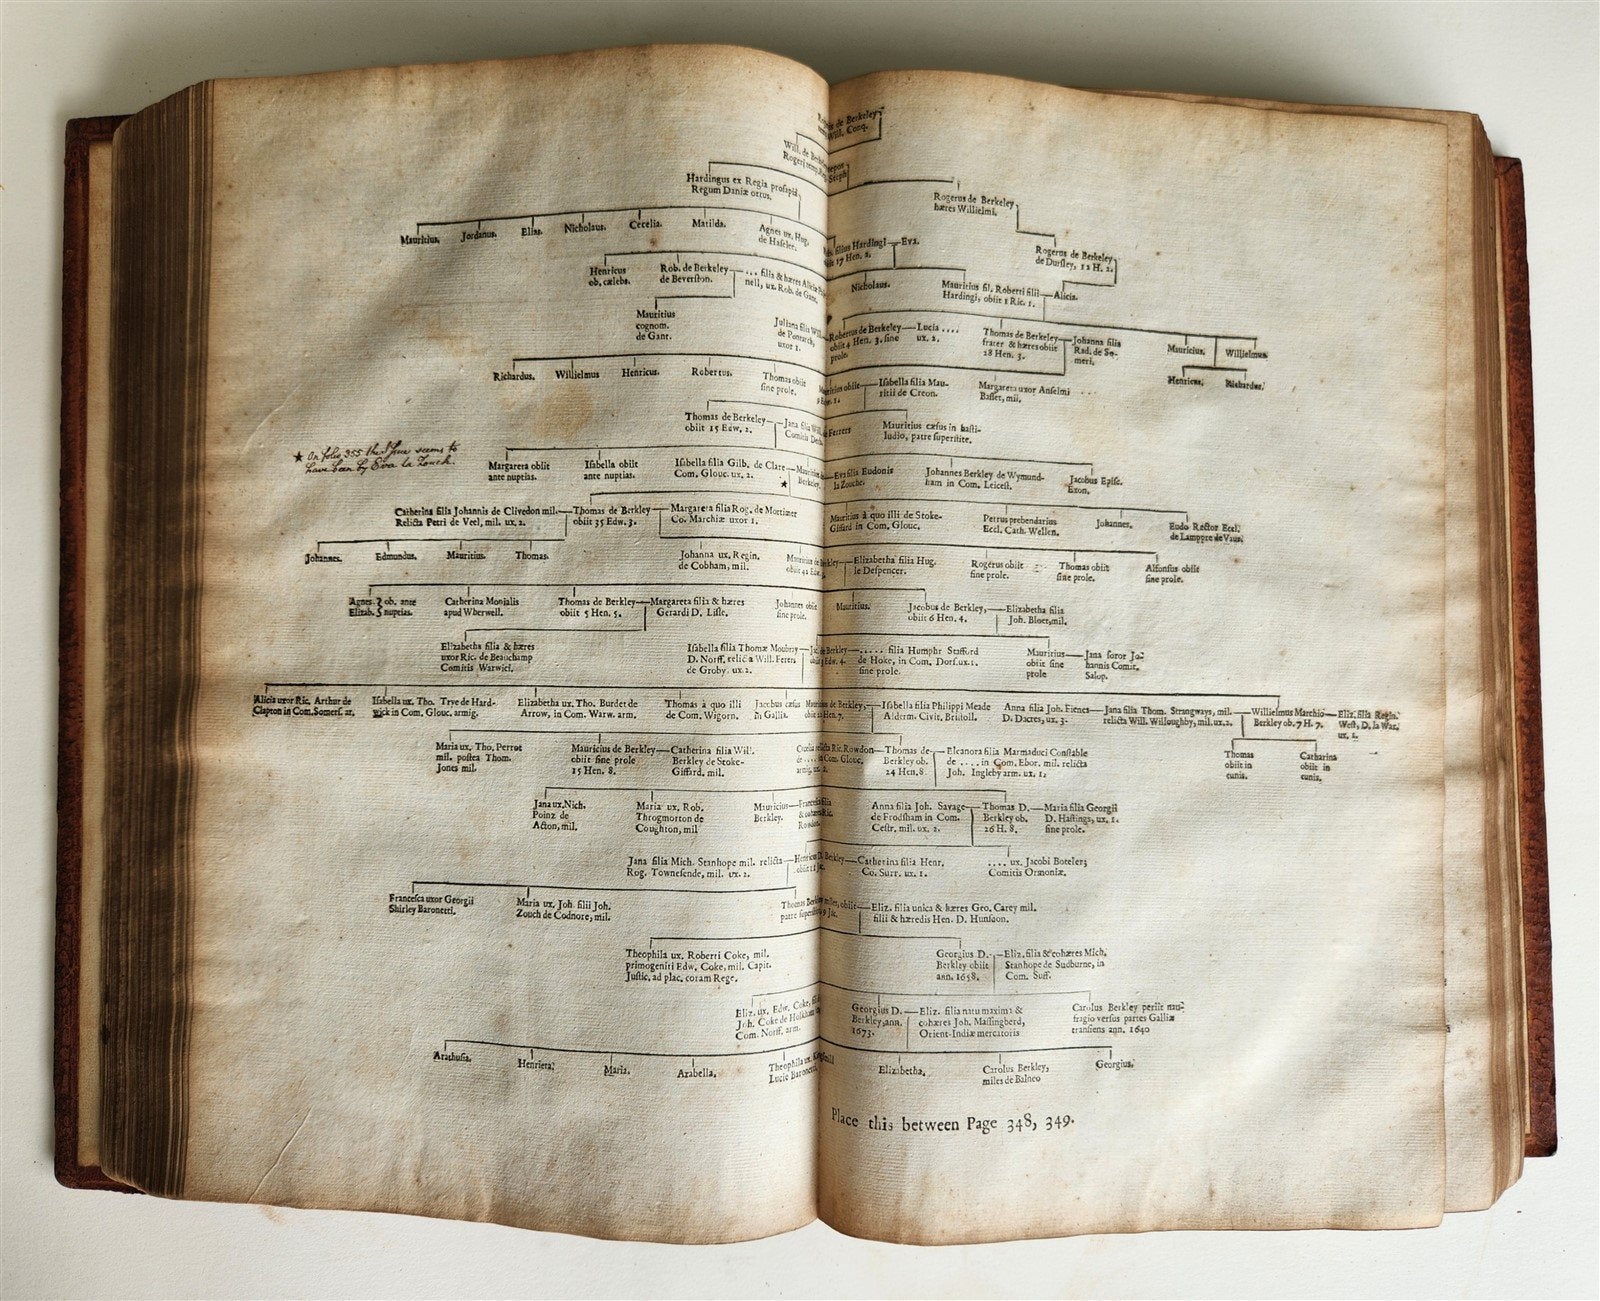 de Berkeley
Will. Conq.
Will. de
Rogeri temp.
nepos
Steph
Hardingus ex Regia prosapia
Regum Daniæ ortus.
Rogerus de Berkeley
hæres Willielmi.
Mauritius.
Jordanus.
Elias.
Nicholaus.
Cecelia.
Matilda.
Agnes ux. Hug.
de Haselee.
filius Hardingi — Eva.
17 Hen. 2.
Rogerus de Berkeley
de Dursley, 12 H. 2.
Henricus
ob. cælebs.
Rob. de Berkeley
de Beverston.
.... filia & hæres Aliciæ
nell, ux. Rob. de Gant.
Nicholaus.
Mauritius fil. Roberti filii
Hardingi, obiit 1 Ric. 1.
Alicia.
Mauritius
cognom.
de Gant.
Juliana filia Will.
de Pontarch,
uxor 1.
Robertus de Berkeley
obiit 4 Hen. 3. sine
prole.
Lucia ....
ux. 2.
Thomas de Berkeley
frater & hæres obiit
28 Hen. 3.
Johanna filia
Rad. de So-
meri.
Mauricius.
Willielmus
Henricus.
Richardus.
Richardus.
Willielmus
Henricus.
Robertus.
Thomas obiit
sine prole.
obiit
9 Edw. 1.
Isabella filia Mau-
ritii de Creon.
Margareta uxor Anselmi
Basset, mil.
Thomas de Berkeley
obiit 15 Edw. 2.
Jana filia Will.
Comitis
de Ferrers
Mauricius cæsus in hasti-
ludio, patre superstite.
★ On folio 355 the Issue seems to
have been by Eva la Zouch.
Margareta obiit
ante nuptias.
Isabella obiit
ante nuptias.
Isabella filia Gilb. de Clare
Com. Glouc. ux. 2.
★
Berkeley.
Eva filia Eudonis
la Zouche.
Johannes Berkley de Wymund-
ham in Com. Leicest.
Jacobus Episc.
Exon.
Catherina filia Johannis de Clivedon mil.
Relicta Petri de Veel, mil. ux. 2.
Thomas de Berkley
obiit 35 Edw. 3.
Margareta filia Rog. de Mortimer
Co. Marchiæ uxor 1.
Mauritius à quo illi de Stoke-
Giffard in Com. Glouc.
Petrus prebendarius
Eccl. Cath. Wellen.
Johannes.
Eudo Rector Eccl.
de Lamppre de Vaus.
Johannes.
Edmundus.
Mauritius.
Thomas.
Johanna ux. Regin.
de Cobham, mil.
Mauricius de Berkley
obiit 42 Edw. 3.
Elizabetha filia Hug.
le Despencer.
Rogerus obiit
sine prole.
Thomas obiit
sine prole.
Alfonsus obiit
sine prole.
Agnes } ob. ante
Elizab. } nuptias.
Catherina Monialis
apud Wherwell.
Thomas de Berkley
obiit 5 Hen. 5.
Margareta filia & hæres
Gerardi D. Lisle.
Johannes obiit
sine prole.
Mauritius.
Jacobus de Berkley,
obiit 6 Hen. 4.
Elizabetha filia
Joh. Bloet, mil.
Elizabetha filia & hæres
uxor Ric. de Beauchamp
Comitis Warwici.
Isabella filia Thomæ Moubray
D. Norff. relicta Will. Ferers
de Groby. ux. 2.
Jac. de Berkley
Edw. 4.
..... filia Humphr Stafford
de Hoke, in Com. Dors. ux. 1.
sine prole.
Mauritius
obiit sine
prole
Jana soror Jo-
hannis Comit.
Salop.
Alicia uxor Ric. Arthur de
Clapton in Com. Somers. ar.
Isabella ux. Tho. Trye de Hard-
wick in Com. Glouc. armig.
Elizabetha ux. Tho. Burdet de
Arrow, in Com. Warw. arm.
Thomas à quo illi
de Com. Wigorn.
Jacobus cæsus
in Gallia.
Mauricius de Berkley,
Hen. 7.
Isabella filia Philippi Meade
Alderm. Civit. Bristoll.
Anna filia Joh. Fienes
D. Dacres, ux. 3.
Jana filia Thom. Strangways, mil.
relicta Will. Willoughby, mil. ux. 2.
Willielmus Marchio
Berkley ob. 7 H. 7.
Eliz. filia Regin.
West, D. la War.
ux. 1.
Maria ux. Tho. Perrot
mil. postea Thom.
Jones mil.
Mauricius de Berkley
obiit sine prole
15 Hen. 8.
Catherina filia Will.
Berkley de Stoke-
Giffard. mil.
Cecelia relicta Ric. Rowdon
de .... in Com. Glouc.
armig. ux. 2.
Thomas de
Berkley ob.
24 Hen. 8.
Eleanora filia Marmaduci Constable
de .... in Com. Ebor. mil. relicta
Joh. Ingleby arm. ux. 1.
Thomas
obiit in
cunis.
Catharina
obiit in
cunis.
Jana ux. Nich.
Poinz de
Acton, mil.
Maria ux. Rob.
Throgmorton de
Coughton, mil
Mauricius
Berkley.
Francesca filia
& cohæres Ric.
Rowdon.
Anna filia Joh. Savage
de Frodsham in Com.
Cestr. mil. ux. 2.
Thomas D.
Berkley ob.
26 H. 8.
Maria filia Georgii
D. Hastings, ux. 1.
sine prole.
Jana filia Mich. Stanhope mil. relicta
Rog. Townesende, mil. ux. 2.
Henricus D. Berkley
obiit 11 Jac.
Catherina filia Henr.
Co. Surr. ux. 1.
.... ux. Jacobi Boteler;
Comitis Ormoniæ.
Francesca uxor Georgii
Shirley Baronetti.
Maria ux. Joh. filii Joh.
Zouch de Codnore, mil.
Thomas Berkley miles, obiit
patre superstite 9 Jac.
Eliz. filia unica & hæres Geo. Carey mil.
filii & hæredis Hen. D. Hunsdon.
Theophila ux. Roberti Coke, mil.
primogeniti Edw. Coke, mil. Capit.
Justic. ad plac. coram Rege.
Georgius D.
Berkley obiit
ann. 1658.
Eliz. filia & cohæres Mich.
Stanhope de Sudburne, in
Com. Suff.
Eliz. ux. Edw. Coke, fil.
Joh. Coke de Holkham
Com. Norff. arm.
Georgius D.
Berkley, ann.
1673.
Eliz. filia natu maxima &
cohæres Joh. Massingberd,
Orient-Indiæ mercatoris
Carolus Berkley periit nau-
fragio versus partes Galliæ
transiens ann. 1640
Arathusia.
Henrieta.
Maria.
Arabella.
Theophila ux. Kingsmill
Lucie Baronetti
Elizabetha.
Carolus Berkley,
miles de Balneo
Georgius.
Place this between Page 348, 349.